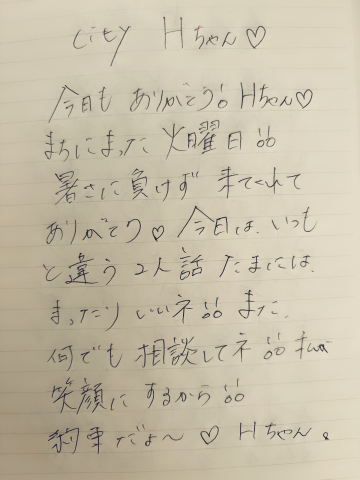 City Hちゃん♡
今日も ありがとう!! Hちゃん♡
まちにまった 火曜日!!
暑さに負けず 来てくれて
ありがとう♡ 今日は、いつも
と違う 2人話 たまには、
まったり いいネ!! また、
何でも 相談してネ!! 私が
笑顔に するから!!
約束だよ〜♡ Hちゃん。